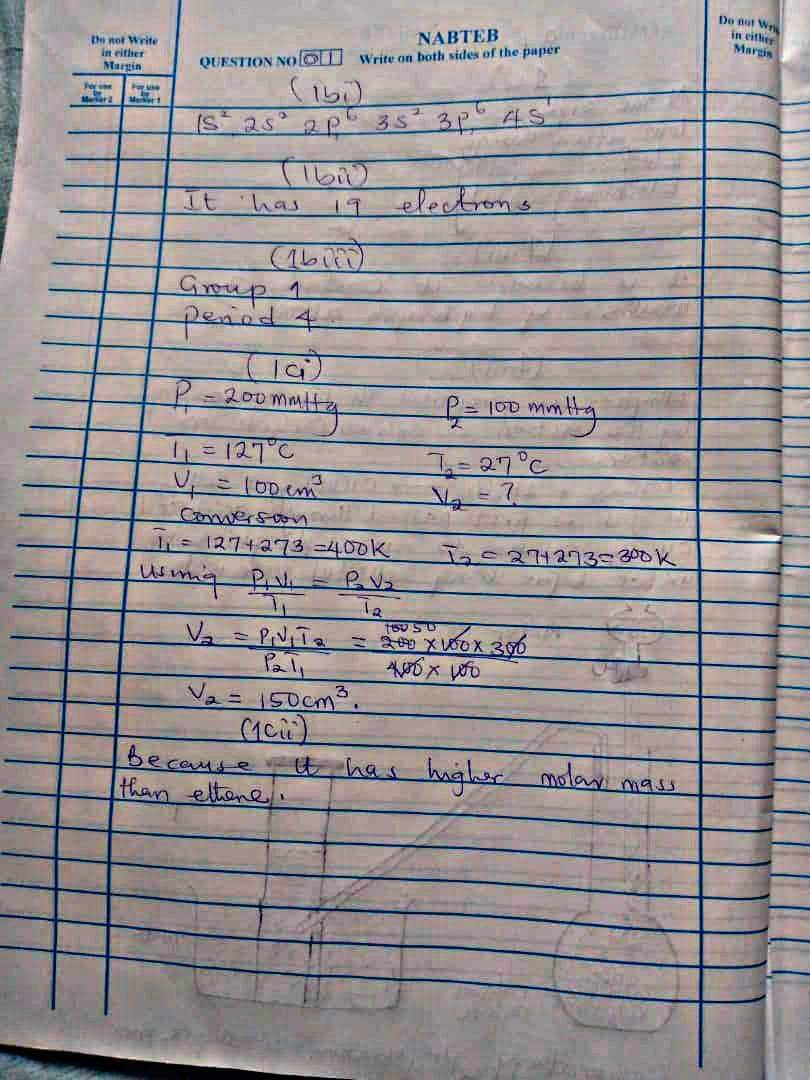 Do not Write
in either
Margin
For use
by
Marker 2
For use
by
Marker 1
NABTEB
QUESTION NO 01 Write on both sides of the paper
Do not Write
in either
Margin
(1bi)
1S² 2S² 2P⁶ 3S² 3P⁶ 4S¹
(1bii)
It has 19 electrons
(1biii)
Group 1
Period 4
(1ci)
P₁ = 200mmHg P₂ = 100 mmHg
T₁ = 127°C T₂ = 27°C
V₁ = 100cm³ V₂ = ?
Conversion
T₁ = 127+273 = 400K T₂ = 27+273 = 300K
Using P₁V₁/T₁ = P₂V₂/T₂
V₂ = P₁V₁T₂/P₂T₁ = 200 × 100 × 300/400 × 100
V₂ = 150cm³.
(1cii)
Because it has higher molar mass
than ethene.